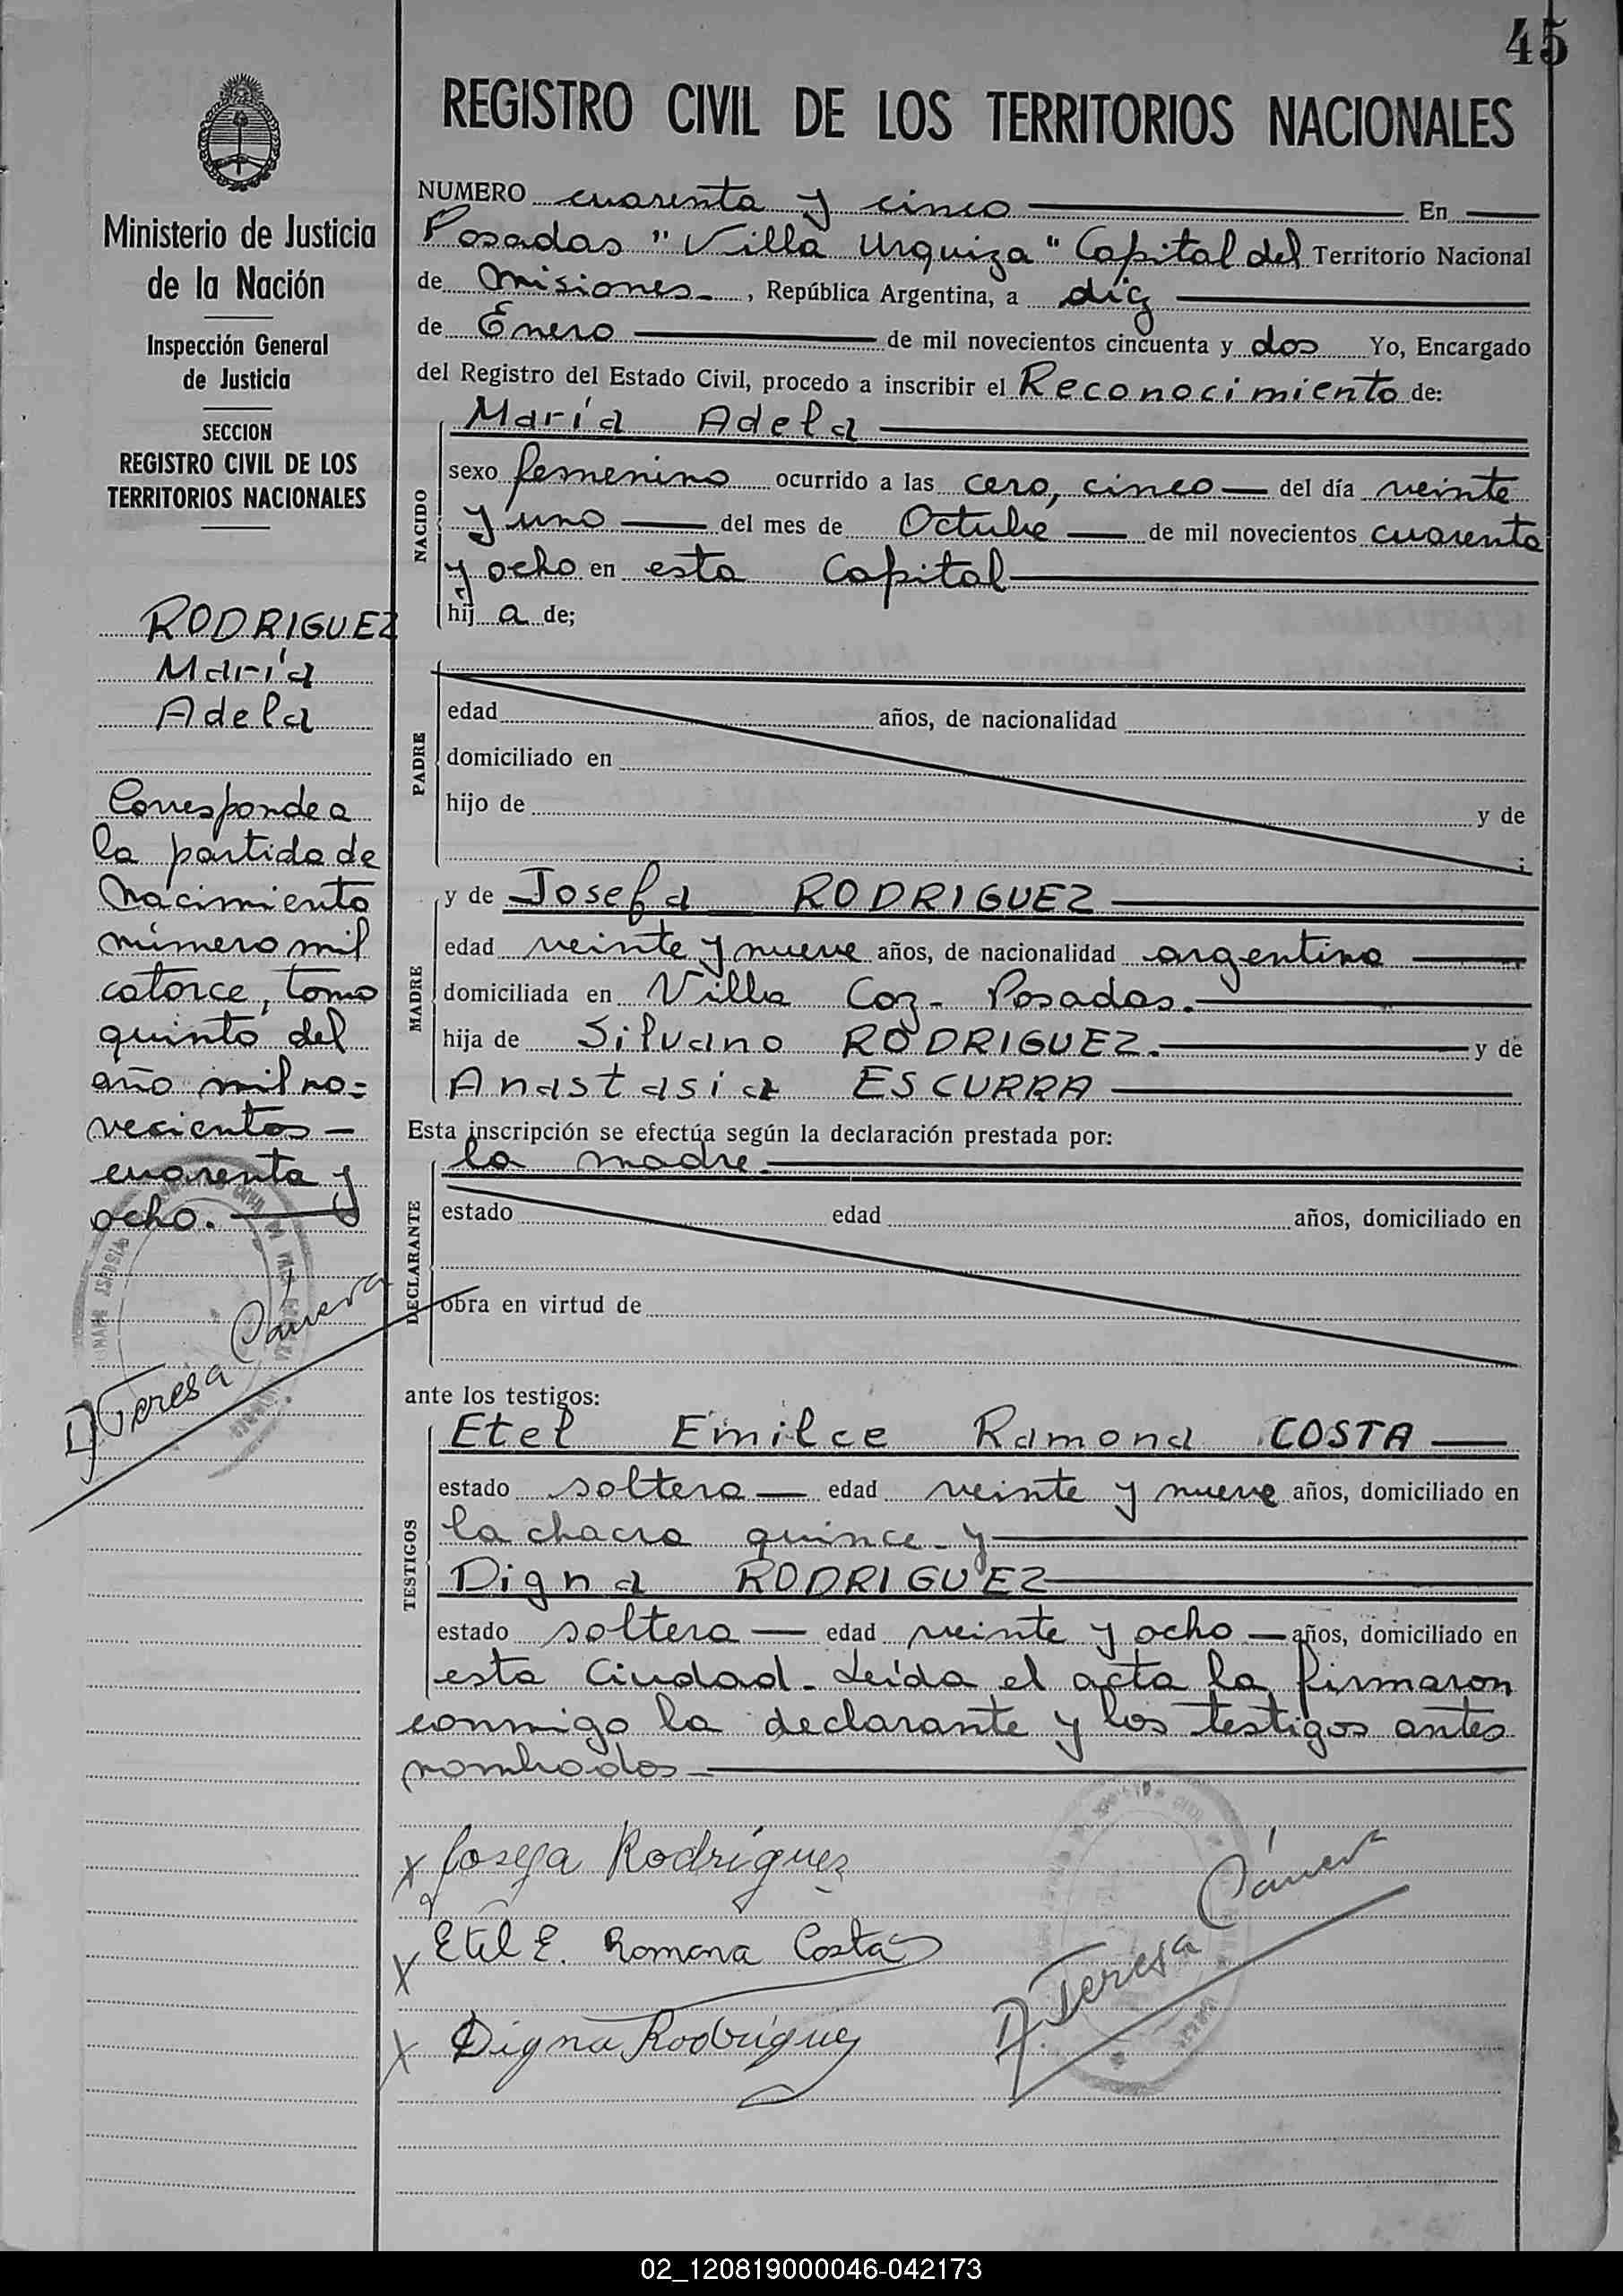 45
REGISTRO CIVIL DE LOS TERRITORIOS NACIONALES
Ministerio de Justicia
de la Nación
Inspección General
de Justicia
SECCION
REGISTRO CIVIL DE LOS
TERRITORIOS NACIONALES
RODRIGUEZ
María
Adela
Corresponde a
la partida de
nacimiento
número mil
catorce, tomo
quinto del
año mil no=
vecientos -
cuarenta y
ocho.
D. Teresa
NUMERO cuarenta y cinco En
Posadas "Villa Urquiza" Capital del Territorio Nacional
de Misiones , República Argentina, a diez
de Enero de mil novecientos cincuenta y dos Yo, Encargado
del Registro del Estado Civil, procedo a inscribir el Reconocimiento de:
María Adela
NACIDO
sexo femenino ocurrido a las cero, cinco del día veinte
y uno del mes de Octubre de mil novecientos cuarenta
y ocho en esta Capital
hij a de;
PADRE
edad años, de nacionalidad
domiciliado en
hijo de y de
;
MADRE
y de Josefa RODRIGUEZ
edad veinte y nueve años, de nacionalidad argentina
domiciliada en Villa Coz - Posadas.
hija de Silvano RODRIGUEZ. y de
Anastasia ESCURRA
Esta inscripción se efectúa según la declaración prestada por:
la madre.
DECLARANTE
estado edad años, domiciliado en
obra en virtud de
ante los testigos:
TESTIGOS
Etel Emilce Ramona COSTA
estado soltera edad veinte y nueve años, domiciliado en
la chacra quince - y
Digna RODRIGUEZ
estado soltera edad veinte y ocho años, domiciliado en
esta Ciudad - Leída el acta la firmaron
conmigo la declarante y los testigos antes
nombrados
x Josefa Rodríguez
x Etel E. Romona Costa
x Digna Rodríguez
D. Teresa
02_120819000046-042173